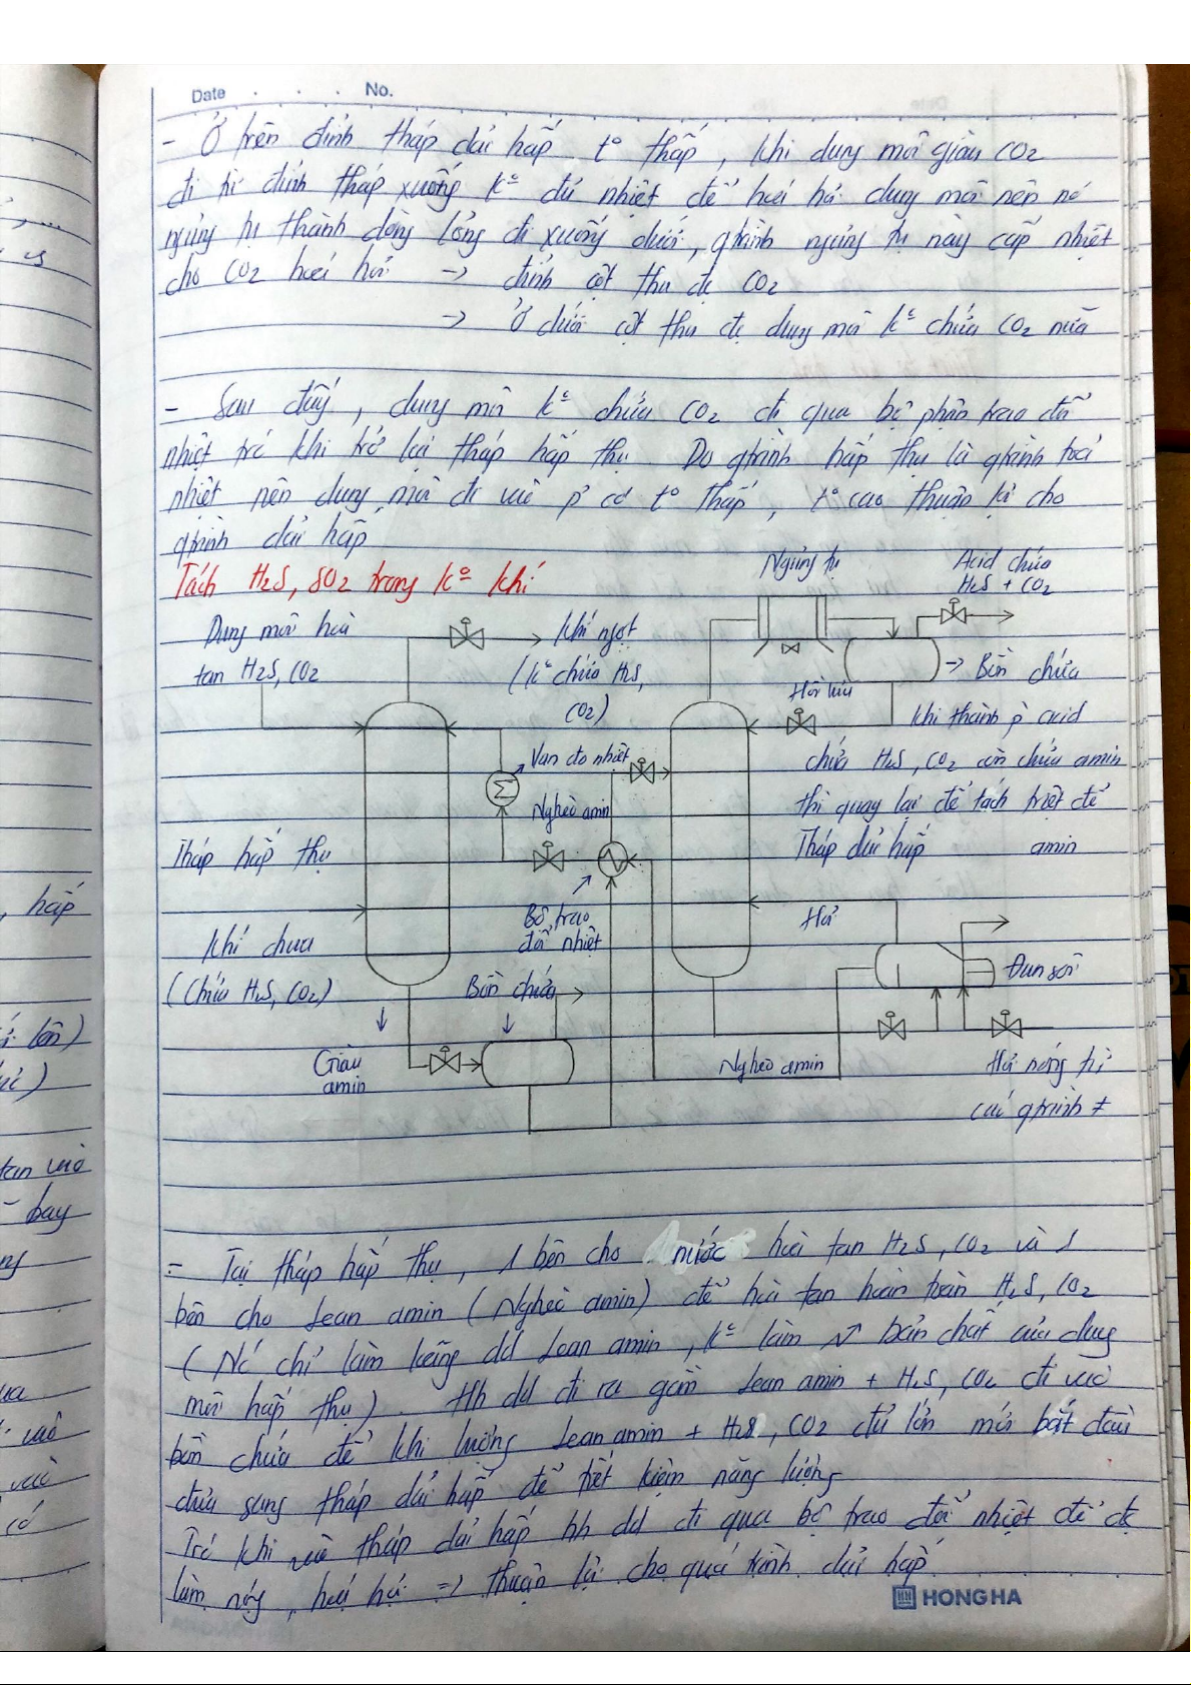 Date . . . No.
- Ở trên đỉnh tháp dải hấp t° thấp, khi dung môi giàu CO2
đi từ đỉnh tháp xuống k° đủ nhiệt để hoá hơi dung môi nên nó
ngưng tụ thành dòng lỏng đi xuống dưới, qtrình ngưng tụ này cấp nhiệt
cho CO2 hoá hơi → đỉnh cột thu đc CO2
→ Ở dưới cột thu đc dung môi k° chứa CO2 nữa
- Sau đấy, dung môi k° chứa CO2 đi qua bộ phận trao đổi
nhiệt trc khi trở lại tháp hấp thụ. Do qtrình hấp thụ là qtrình toả
nhiệt nên dung môi đi vào p có t° thấp, t° cao thuận lợi cho
qtrình dải hấp
Tách H2S, SO2 trong k° khí
Ngưng tụ
Acid chứa
H2S + CO2
Dung môi hoà
tan H2S, CO2
Khí ngọt
(k° chứa H2S,
CO2)
→ Bồn chứa
Hồi lưu
khi thành p acid
chứa H2S, CO2 còn chứa amin
thì quay lại để tách triệt để
amin
Van đo nhiệt
Nghèo amin
Tháp hấp thụ
Tháp dải hấp
Bộ trao
đổi nhiệt
Hơi
Khí chua
(Chứa H2S, CO2)
Bồn chứa
Đun sôi
Giàu
amin
Nghèo amin
Hơi nóng từ
các qtrình ≠
- Tại tháp hấp thụ, 1 bên cho nước hoà tan H2S, CO2 và 1
bên cho Lean amin (Nghèo amin) để hoà tan hoàn toàn H2S, CO2
(Nó chỉ làm loãng dd Lean amin, k° làm bản chất của dung
môi hấp thụ). Hh dd đi ra gồm Lean amin + H2S, CO2 đi vào
bồn chứa để khi lượng Lean amin + H2S, CO2 đủ lớn mới bắt đầu
đưa sang tháp dải hấp để tiết kiệm năng lượng
Trc khi vào tháp dải hấp hh dd đi qua bộ trao đổi nhiệt để đc
làm nóng, hoá hơi => thuận lợi cho quá trình dải hấp.
HONG HA
hấp
lên)
tan vào
bay
vào
có